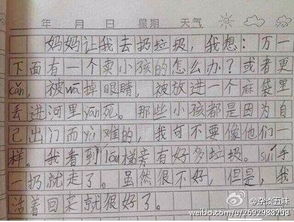 年 月 日 星期 天气
妈妈让我去扔垃圾，我想：万一
下面有一个卖小孩的怎么办？或者更
cǎn，被wā掉眼睛，被放进一个麻袋里
丢进河里yān死。那些小孩都是因为自
己出门而 的，我可不要像他们一
样。我看到lóu梯旁有好多垃圾。suí手
一扔就走了。虽然很不好，但是，我
活着回来就很好了。
@杂谈五味
weibo.com/2692983203